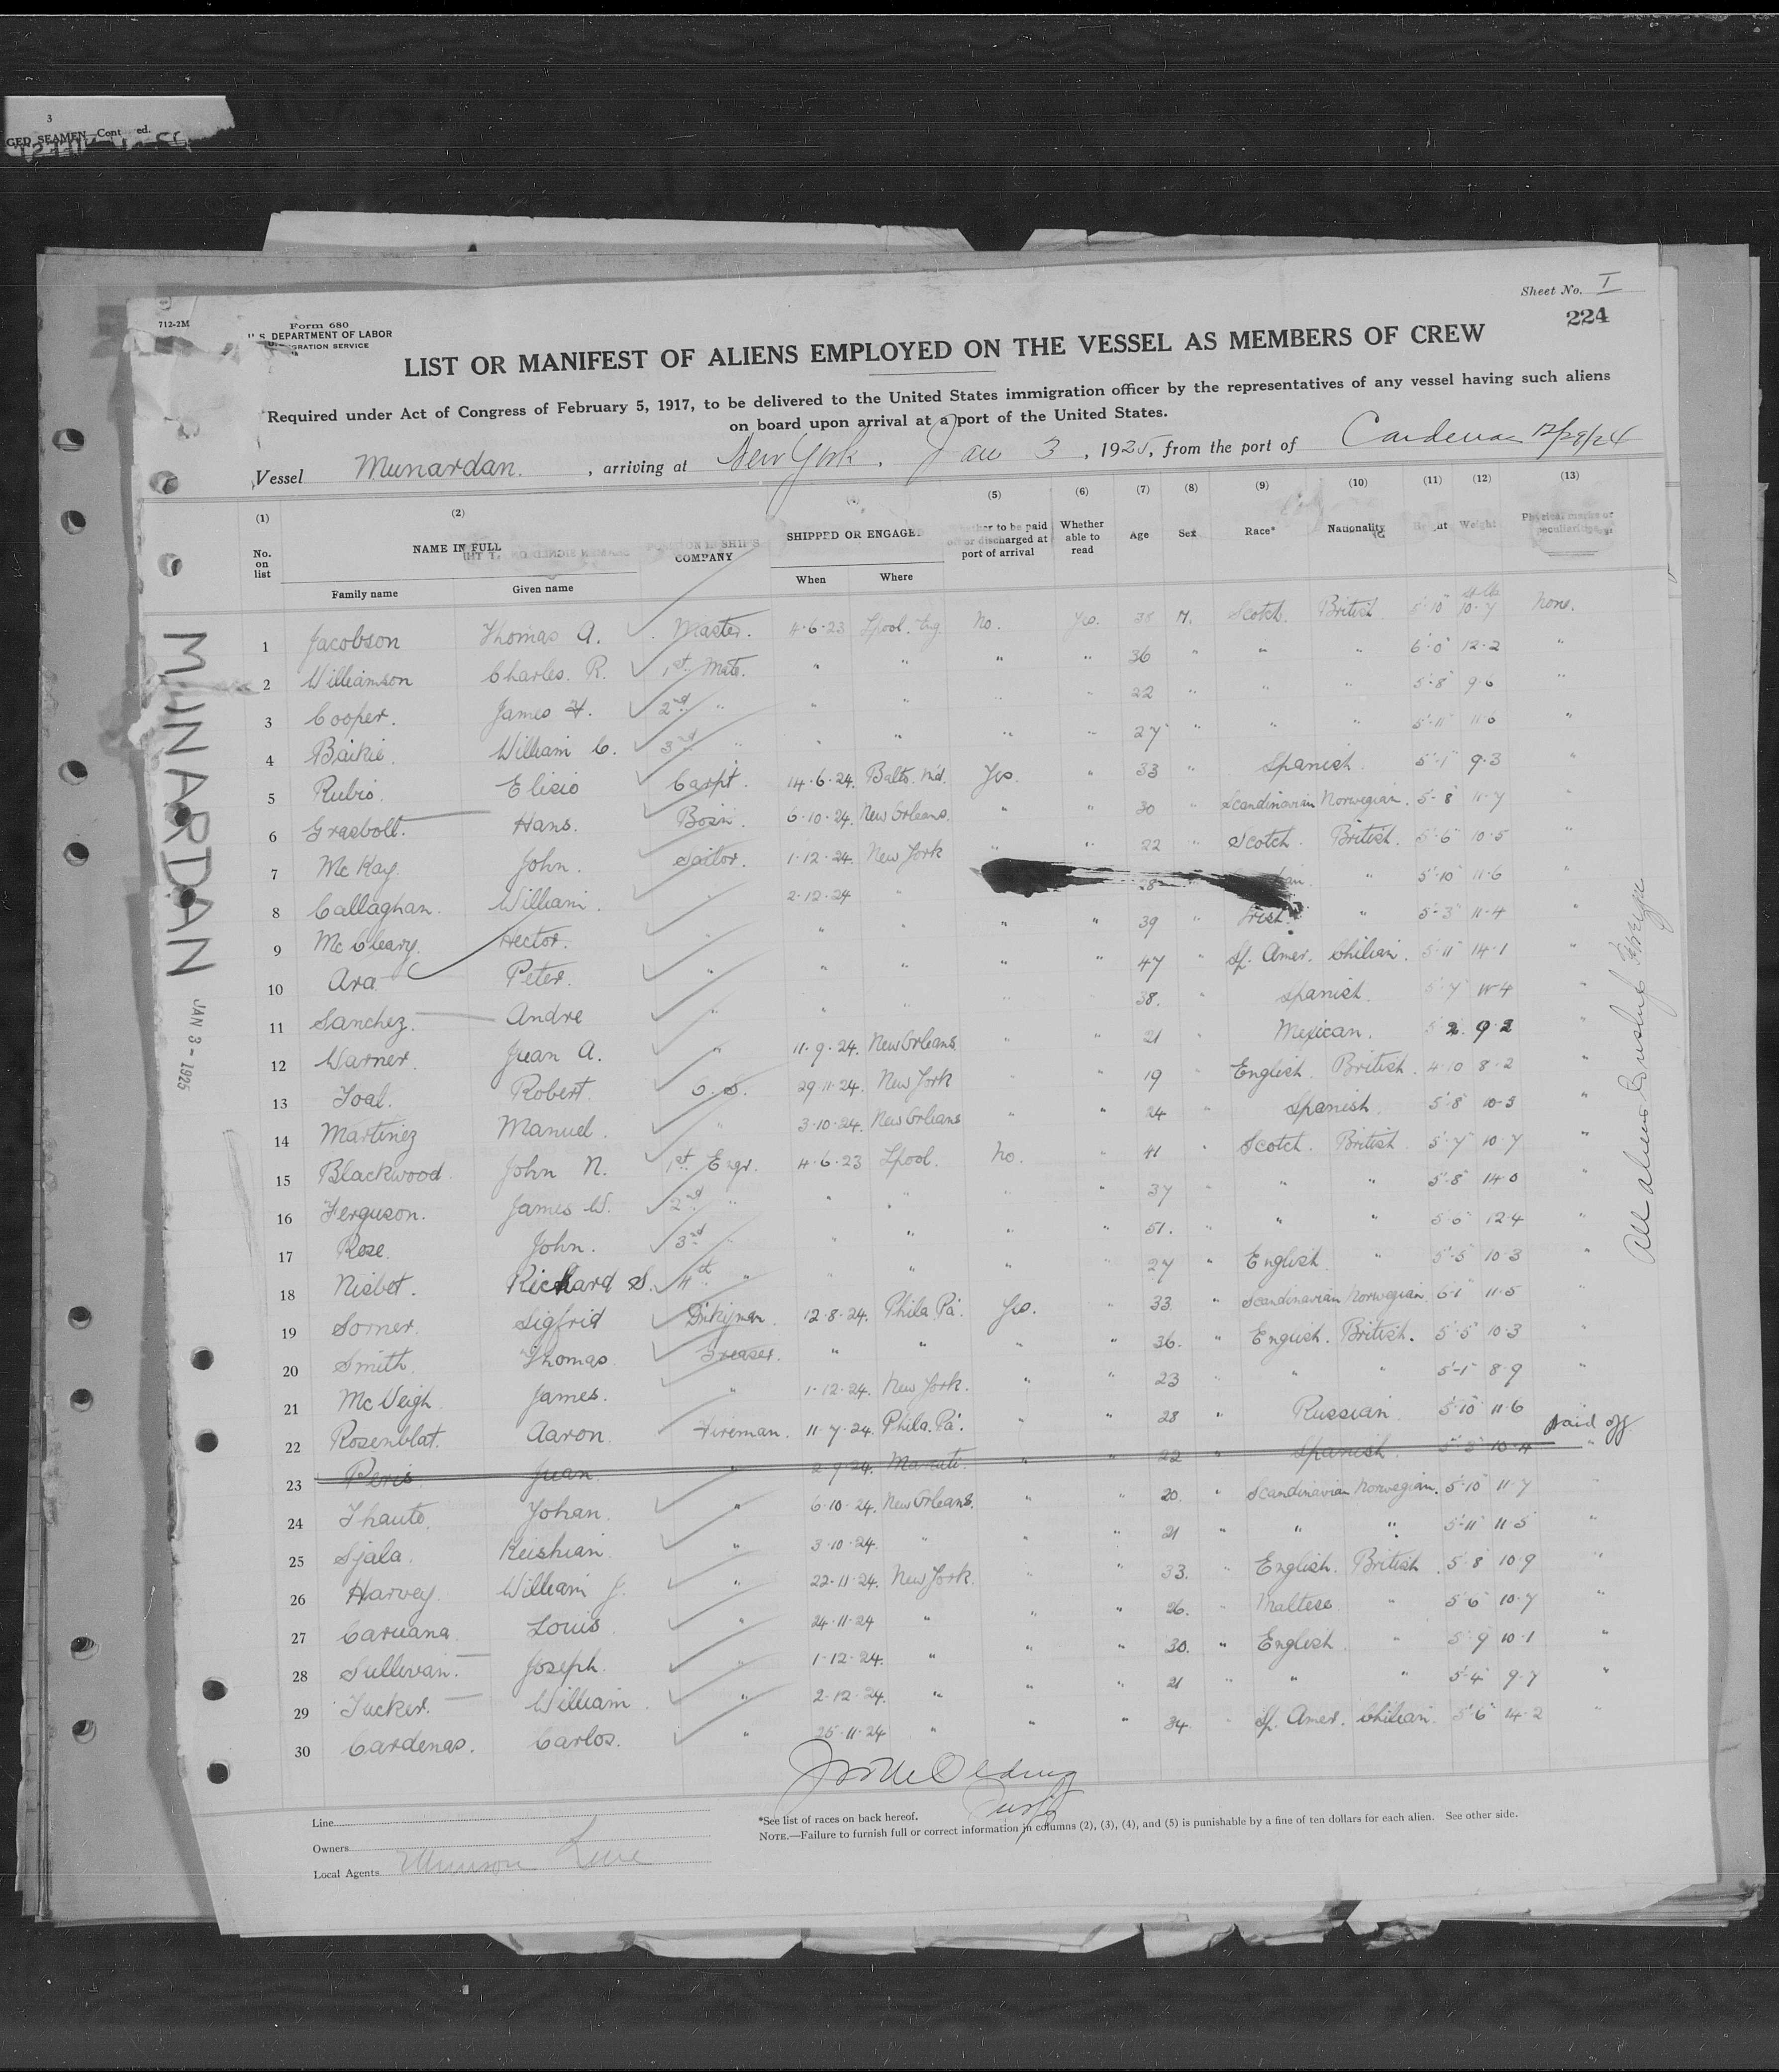 3
GED SEAMEN—Cont ed.
Sheet No. I
224
712-2M
Form 680
U.S. DEPARTMENT OF LABOR
GRATION SERVICE
LIST OR MANIFEST OF ALIENS EMPLOYED ON THE VESSEL AS MEMBERS OF CREW
Required under Act of Congress of February 5, 1917, to be delivered to the United States immigration officer by the representatives of any vessel having such aliens
on board upon arrival at a port of the United States.
Vessel Munardan. , arriving at New York, Jan 3, 1925, from the port of Cardenas 12/29/24
(1) (2) (5) (6) (7) (8) (9) (10) (11) (12) (13)
No. on list NAME IN FULL POSITION IN SHIP'S COMPANY SHIPPED OR ENGAGED Whether to be paid off or discharged at port of arrival Whether able to read Age Sex Race* Nationality Height Weight Physical marks or peculiarities
Family name Given name When Where
1 Jacobson Thomas A. Master. 4.6.23 Lpool. Eng. No. Yes. 38 M. Scotch. British 5'-10" 10-7 None.
2 Williamson Charles. R. 1st Mate. " " " " 36 " " " 6'-0" 12-2 "
3 Cooper. James H. 2nd " " " " " 22 " " " 5'-8" 9-6 "
4 Baikie. William C. 3rd " " " " " 27 " " " 5'-11" 11-6 "
5 Rubio. Elisio Carpt. 14.6.24. Balto. Md. Yes. " 33 " Spanish. 5'-1" 9-3 "
6 Grasbolt. Hans. Bosn. 6.10.24. New Orleans. " " 30 " Scandinavian Norwegian. 5-8 11-7 "
7 McKay. John. Sailor. 1.12.24. New York " " 22 " Scotch. British. 5'-6" 10-5 "
8 Callaghan. William. " 2-12-24 " 28 " " 5'-10" 11-6 "
9 McCleary. Hector. " " " " " 39 " Irish. " 5'-3" 11-4 "
10 Ara Peter. " " " " " 47 " Sp. Amer. Chilian. 5'-11" 14-1 "
11 Sanchez. Andre " " " " 38. " Spanish. 5-7 "
12 Warner. Juan A. " 11.9.24. New Orleans " " 21 " Mexican. 5-2 9-2 "
13 Toal. Robert. O.S. 29.11.24. New York " " 19 " English. British. 4-10 8-2 "
14 Martinez Manuel. " 3.10.24. New Orleans " " 24 " Spanish. 5'-8" 10-3 "
15 Blackwood. John N. 1st Engr. 4.6.23 Lpool. No. " 41 " Scotch. British 5'-7" 10-7 "
16 Ferguson. James W. 2nd " " " " " 37 " " " 5'-8" 14-0 "
17 Rose. John. 3rd " " " " " 51. " " " 12-4 "
18 Nisbet. Richard S. 4th " " " " " 27 " English. " 5'-5" 10-3 "
19 Somer. Sigfrid Dnkyman. 12-8-24. Phila. Pa. Yes. " 33 " Scandinavian Norwegian 6'-1" 11-5 "
20 Smith. Thomas. Greaser. " " " " 36. " English. British. 5'-5" 10-3 "
21 McVeigh James. " 1-12-24. New York. " " 23 " " " 5'-1" 8-9 "
22 Rosenblat. Aaron. Fireman. 11-7-24. Phila. Pa. " " 28 " Russian. 5'-10" 11-6 "
paid off
23 Peris. Juan. " 2-9-24. Manati. " " 22 " Spanish. 5'-5" 10-4 "
24 Thaute. Johan. " 6.10.24. New Orleans. " " 20. " Scandinavian Norwegian. 5'-10" 11-7 "
25 Sjala. Keishian. " 3-10-24. " " " 21 " " " 5'-11" 11-5 "
26 Harvey. William J. " 22-11-24. New York. " " 33. " English. British. 5'-8" 10-9 "
27 Caruana Louis. " 24-11-24 " " " 26. " Maltese. " 5'-6" 10-7 "
28 Sullivan. Joseph. " 1-12-24. " " " 30. " English. " 5'-9 10-1 "
29 Tucker. William. " 2-12-24. " " " 21 " " " 5'-4" 9-7 "
30 Cardenas. Carlos. " 25-11-24 " " " 34. " Sp. Amer. Chilian. 5'-6" 14-2 "
MUNARDAN
JAN 3-1925
Line
Owners
Local Agents Munson Line
*See list of races on back hereof.
NOTE.—Failure to furnish full or correct information in columns (2), (3), (4), and (5) is punishable by a fine of ten dollars for each alien. See other side.